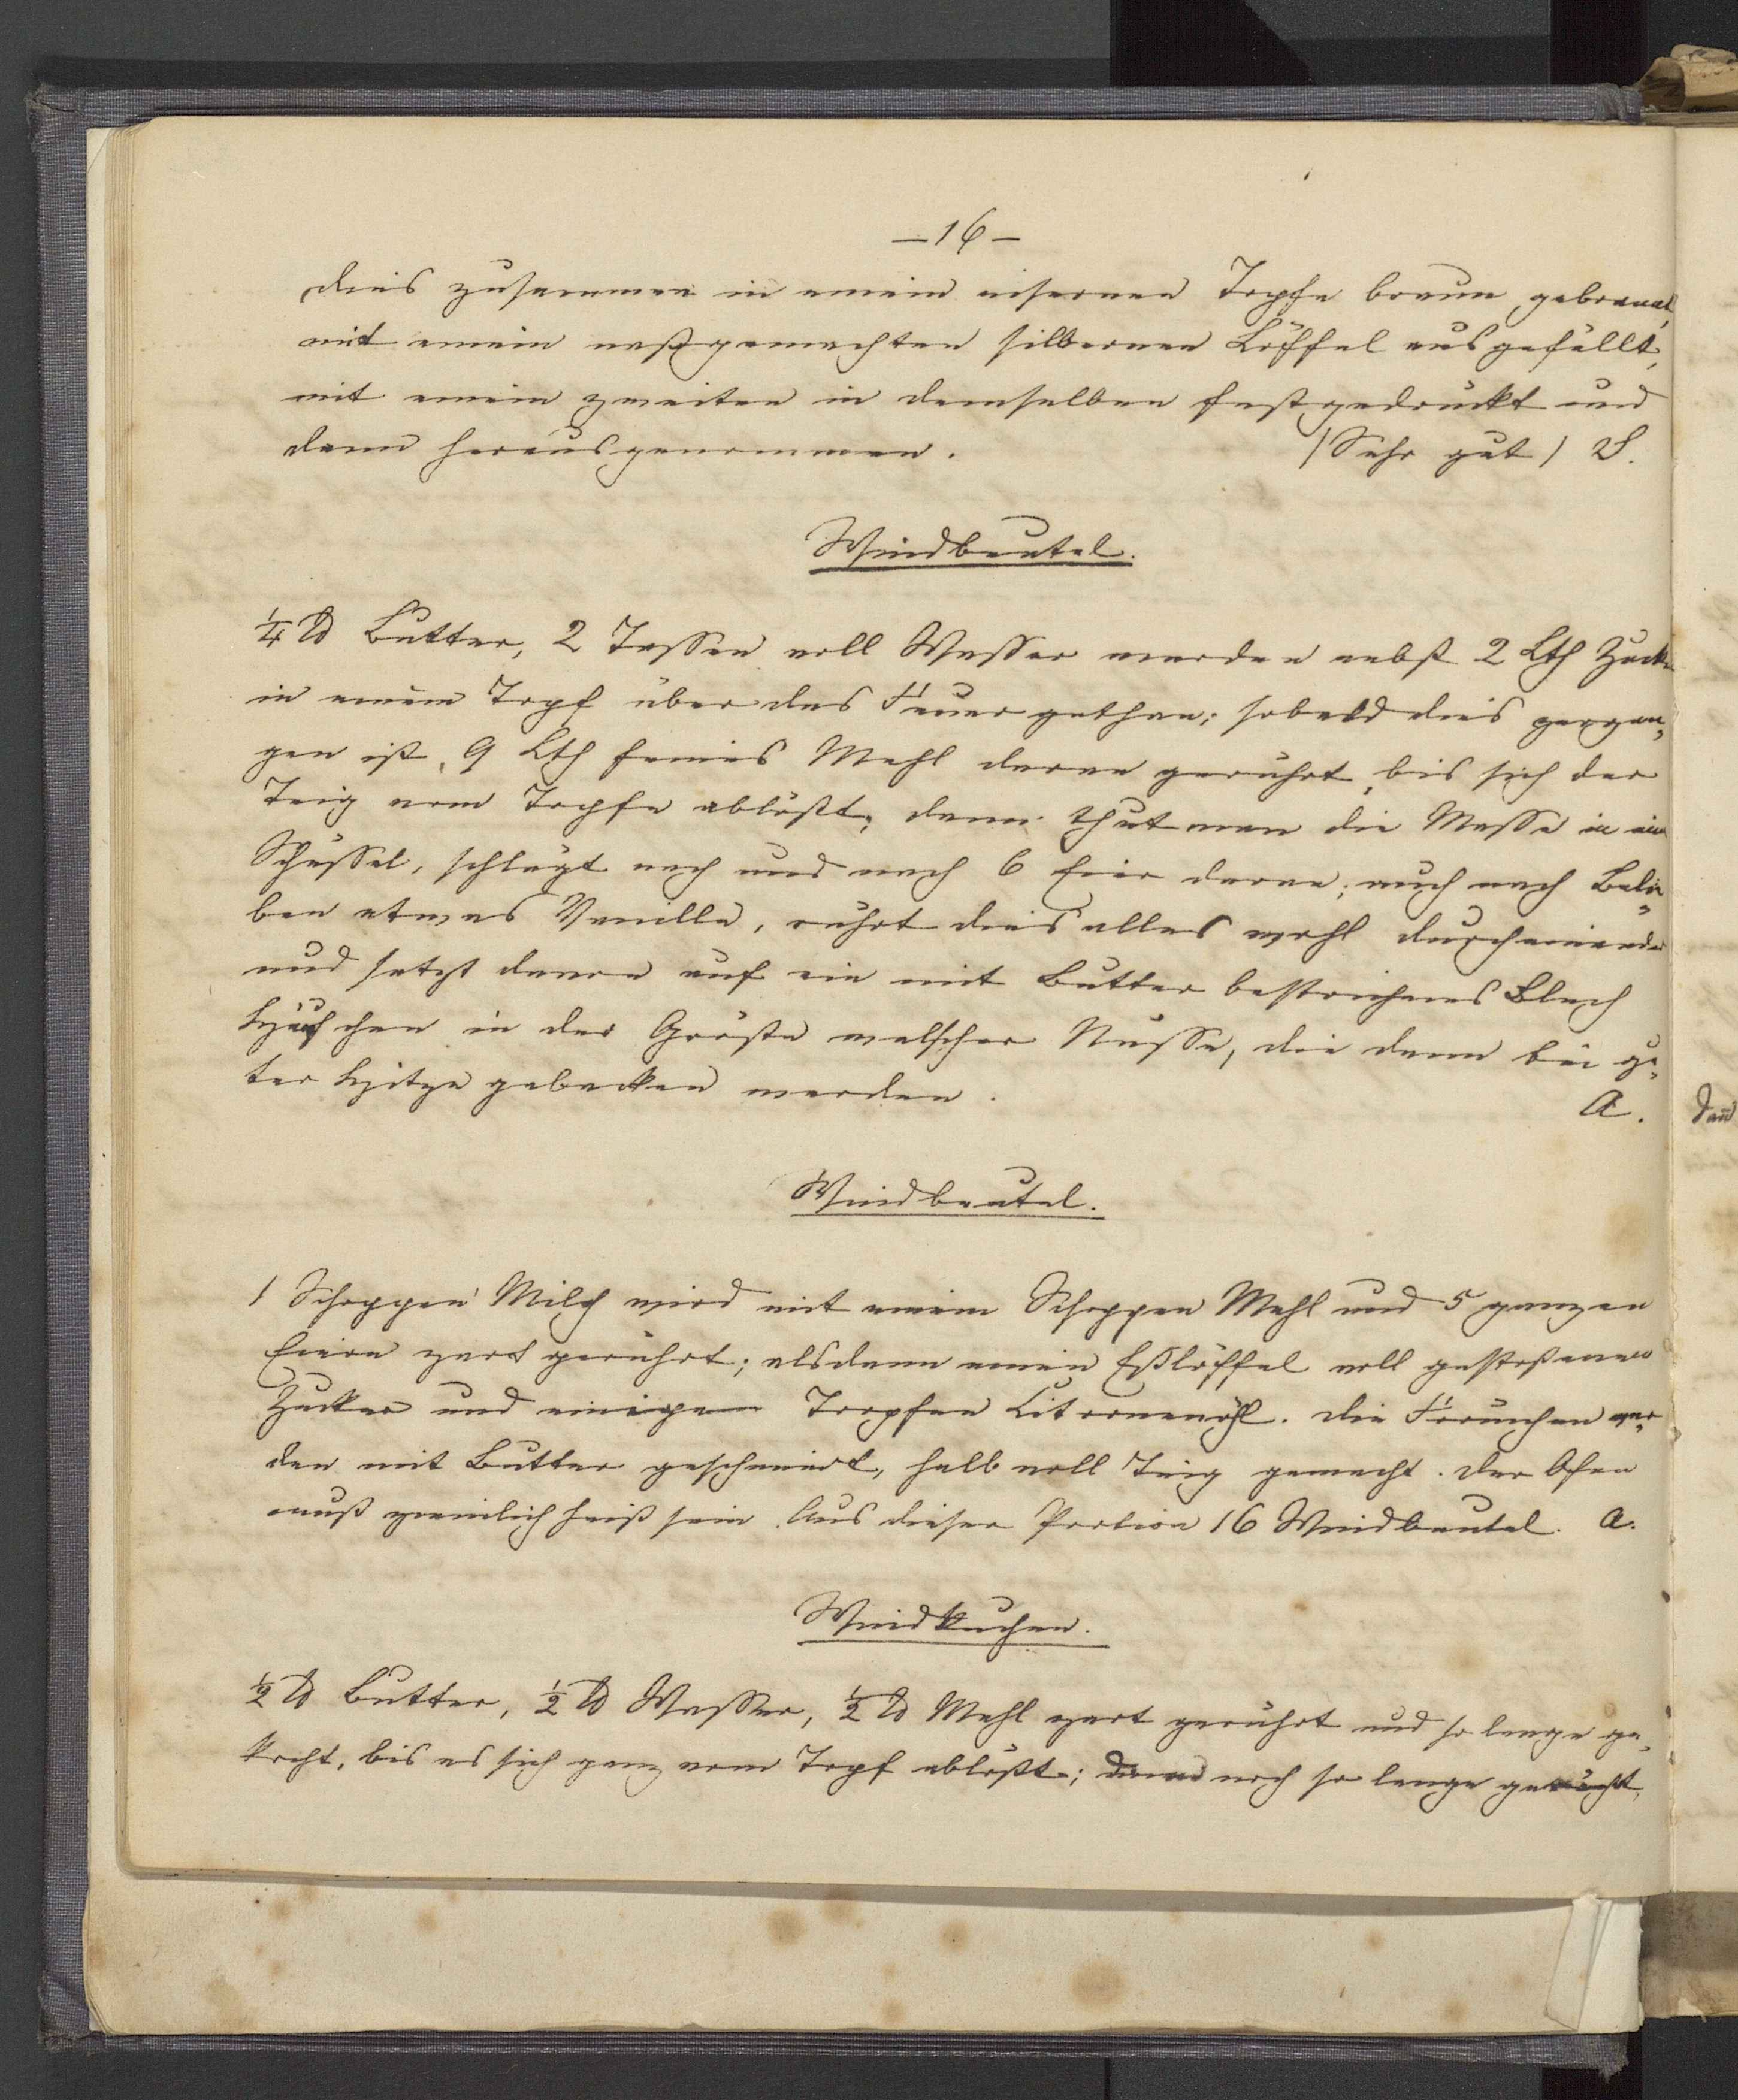 — 16 —
dies zusammen in einem eisernen Topfe braun gebrannt,
mit einem naßgemachten silbernen Löffel ausgefüllt,
mit einem zweiten in demselben festgedrückt und
dann herausgenommen. (Sehr gut) S.
Windbeutel.
¼ ℔ Butter, 2 Tassen voll Wasser werden nebst 2 Lth Zucker
in einem Topf über das Feuer gethan; sobald dies gegan„
gen ist, 9 Lth feines Mehl daran gerührt, bis sich der
Teig vom Topfe ablößt; dann thut man die Masse in eine
Schüssel, schlägt nach und nach 6 Eier daran; auch nach Belie„
ben etwas Vanille, rührt dies alles wohl durcheinander
und setzt davon auf ein mit Butter bestrichenes Blech
Häufchen in der Größe welscher Nüsse, die dann bei gu„
ter Hitze gebacken werden. A.
Windbeutel.
1 Schoppen Milch wird mit einem Schoppen Mehl und 5 ganzen
Eiern zart gerührt; alsdann einen Eßlöffel voll gestoßenen
Zucker und einigen Tropfen Citronenöhl. Die Förmchen wer„
den mit Butter geschmiert, halb voll Teig gemacht. Der Ofen
muß ziemlich heiß sein. Aus dieser Portion 16 Windbeutel. A.
Windkuchen.
½ ℔ Butter, ½ ℔ Wasser, ½ ℔ Mehl zart gerührt und so lange ge„
kocht, bis es sich ganz vom Topf ablößt; dann noch so lange gerührt,
dann̄